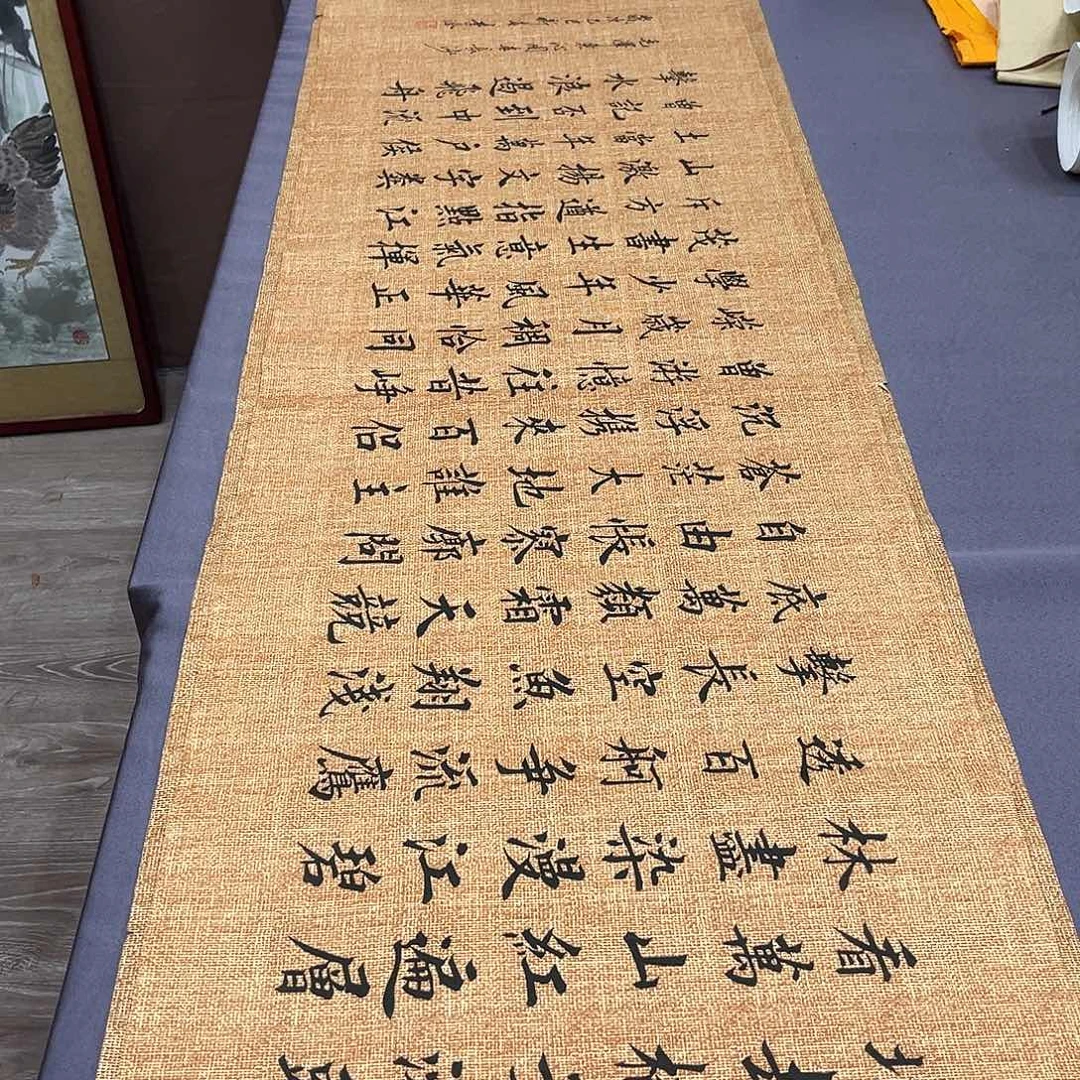 看萬山紅遍層
林盡染漫江碧
透百舸争流鷹
擊長空魚翔淺
底萬類霜天競
自由悵寥廓問
蒼茫大地誰主
沉浮携來百侶
曾游憶往昔崢
嶸歲月稠恰同
學少年風華正
茂書生意氣揮
斥方遒指點江
山激揚文字糞
土當年萬戶侯
曾記否到中流
擊水浪遏飛舟
毛澤東沁園春長沙